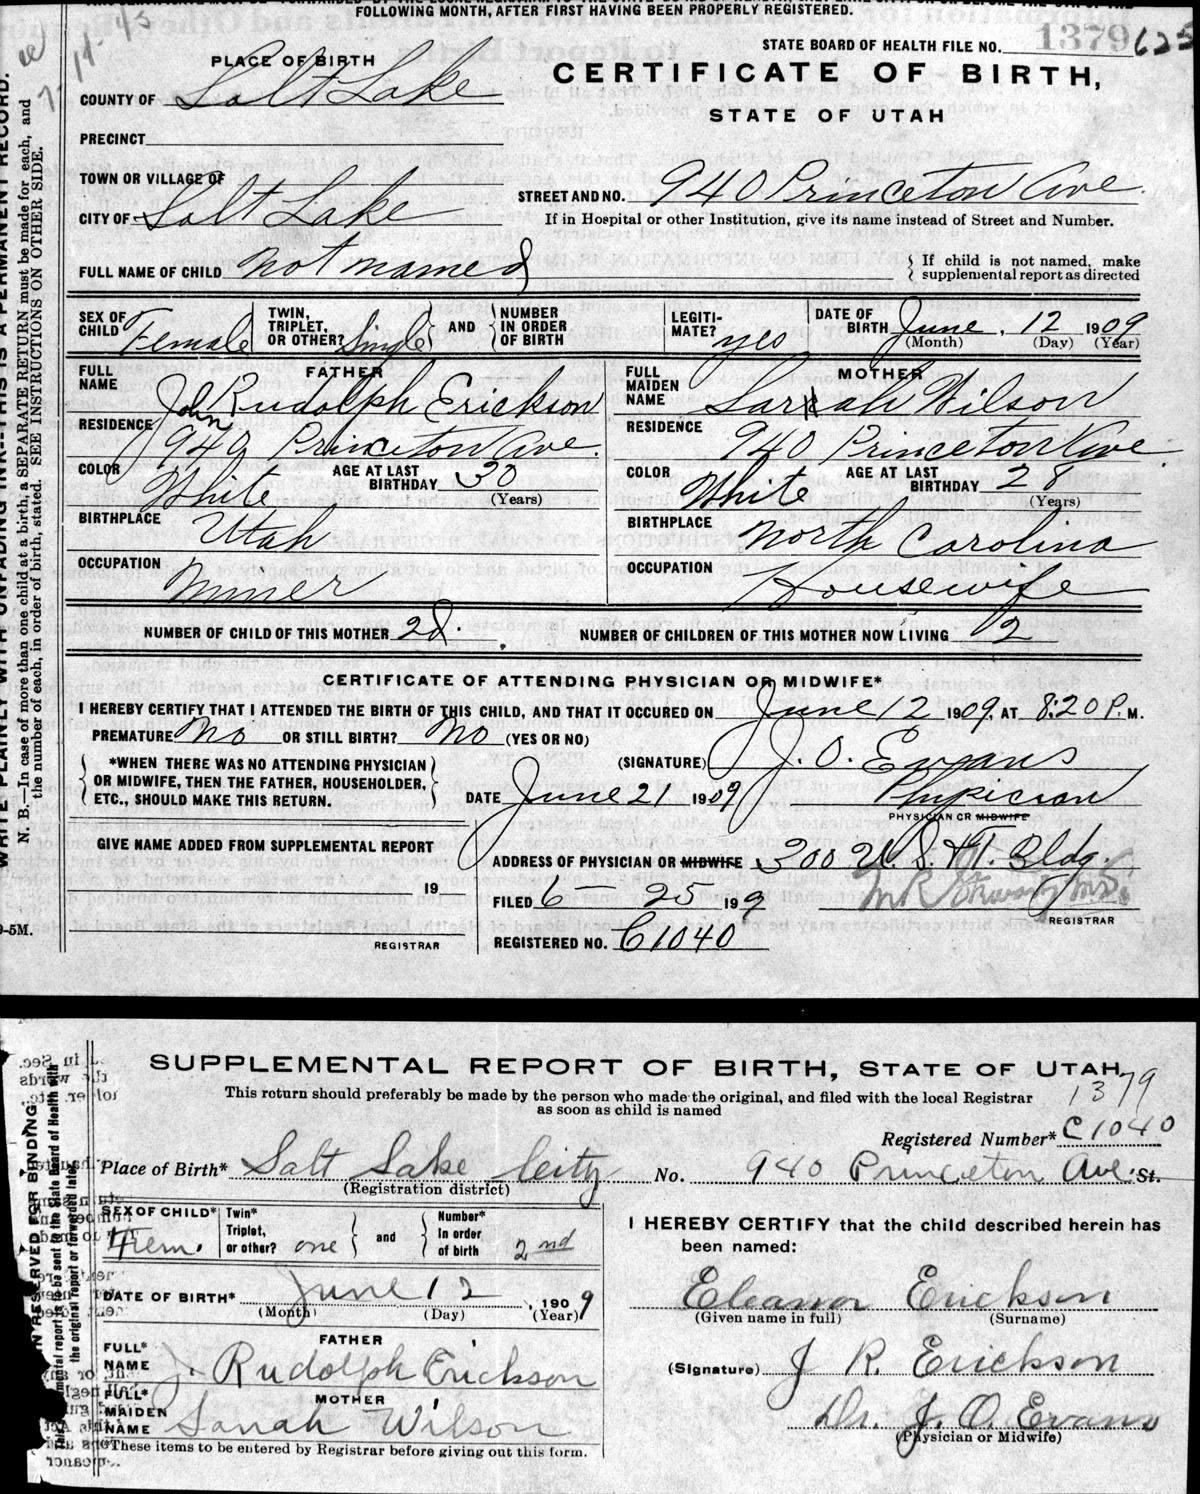 FOLLOWING MONTH, AFTER FIRST HAVING BEEN PROPERLY REGISTERED.
STATE BOARD OF HEALTH FILE NO. 1379 625
PLACE OF BIRTH
CERTIFICATE OF BIRTH,
COUNTY OF Salt Lake
STATE OF UTAH
PRECINCT
TOWN OR VILLAGE OF
STREET AND NO. 940 Princeton Ave.
CITY OF Salt Lake
If in Hospital or other Institution, give its name instead of Street and Number.
FULL NAME OF CHILD Not named
If child is not named, make
supplemental report as directed
SEX OF CHILD Female
TWIN, TRIPLET, OR OTHER? Single AND NUMBER IN ORDER OF BIRTH
LEGITIMATE? yes
DATE OF BIRTH June 12 1909
(Month) (Day) (Year)
FATHER
FULL NAME John Rudolph Erickson
RESIDENCE 940 Princeton Ave.
COLOR White AGE AT LAST BIRTHDAY 30
(Years)
BIRTHPLACE Utah
OCCUPATION Miner
MOTHER
FULL MAIDEN NAME Sarah Wilson
RESIDENCE 940 Princeton Ave
COLOR White AGE AT LAST BIRTHDAY 28
(Years)
BIRTHPLACE North Carolina
OCCUPATION Housewife
NUMBER OF CHILD OF THIS MOTHER 2d. NUMBER OF CHILDREN OF THIS MOTHER NOW LIVING 2
CERTIFICATE OF ATTENDING PHYSICIAN OR MIDWIFE*
I HEREBY CERTIFY THAT I ATTENDED THE BIRTH OF THIS CHILD, AND THAT IT OCCURED ON June 12 1909, AT 8:20 P. M.
PREMATURE No OR STILL BIRTH? No (YES OR NO)
*WHEN THERE WAS NO ATTENDING PHYSICIAN
OR MIDWIFE, THEN THE FATHER, HOUSEHOLDER,
ETC., SHOULD MAKE THIS RETURN.
(SIGNATURE) J. O. Evans
DATE June 21 1909 Physician
PHYSICIAN OR MIDWIFE
GIVE NAME ADDED FROM SUPPLEMENTAL REPORT
19
REGISTRAR
ADDRESS OF PHYSICIAN OR MIDWIFE 300 U. S. & T. Bldg.
FILED 6 - 25 199
REGISTRAR
REGISTERED NO. C1040
WRITE PLAINLY WITH UNFADING INK--THIS IS A PERMANENT RECORD.
N. B.—In case of more than one child at a birth, a SEPARATE RETURN must be made for each, and
the number of each, in order of birth, stated. SEE INSTRUCTIONS ON OTHER SIDE.
9-5M.
SUPPLEMENTAL REPORT OF BIRTH, STATE OF UTAH
This return should preferably be made by the person who made the original, and filed with the local Registrar
as soon as child is named
1379
Registered Number* C1040
Place of Birth* Salt Lake City No. 940 Princeton Ave. St.
(Registration district)
SEX OF CHILD* Fem.
Twin* Triplet, or other? one and Number* In order of birth 2nd
DATE OF BIRTH* June 12, 1909
(Month) (Day) (Year)
FATHER
FULL* NAME J. Rudolph Erickson
MOTHER
FULL* MAIDEN NAME Sarah Wilson
*These items to be entered by Registrar before giving out this form.
I HEREBY CERTIFY that the child described herein has
been named:
Eleanor Erickson
(Given name in full) (Surname)
(Signature) J R. Erickson
Dr. J. O. Evans
(Physician or Midwife)